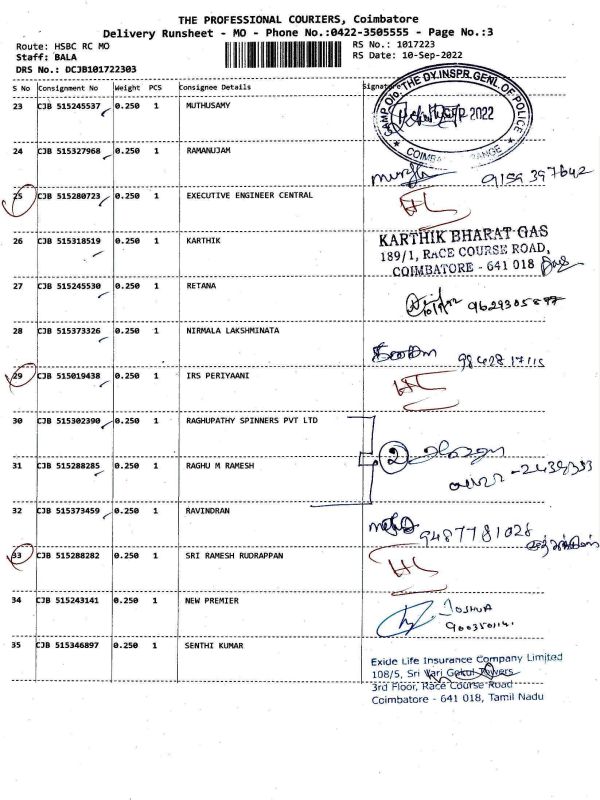 THE PROFESSIONAL COURIERS, Coimbatore
Delivery Runsheet - MO - Phone No.:0422-3505555 - Page No.:3
Route: HSBC RC MO
Staff: BALA
DRS No.: DCJB101722303
RS No.: 1017223
RS Date: 10-Sep-2022
S No Consignment No Weight PCS Consignee Details
23 CJB 515245537 0.250 1 MUTHUSAMY
CAMP O/o. THE DY.INSPR.GENL.OF POLICE
2022
24 CJB 515327968 0.250 1 RAMANUJAM
9159397642
25 CJB 515280723 0.250 1 EXECUTIVE ENGINEER CENTRAL
26 CJB 515318519 0.250 1 KARTHIK
KARTHIK BHARAT GAS
189/1, RACE COURSE ROAD,
COIMBATORE - 641 018
27 CJB 515245530 0.250 1 RETANA
28 CJB 515373326 0.250 1 NIRMALA LAKSHMINATA
29 CJB 515019438 0.250 1 IRS PERIYAANI
30 CJB 515302390 0.250 1 RAGHUPATHY SPINNERS PVT LTD
2
31 CJB 515288285 0.250 1 RAGHU M RAMESH
32 CJB 515373459 0.250 1 RAVINDRAN
9487781028
33 CJB 515288282 0.250 1 SRI RAMESH RUDRAPPAN
34 CJB 515243141 0.250 1 NEW PREMIER
JOSHUA
35 CJB 515346897 0.250 1 SENTHI KUMAR
Exide Life Insurance Company Limited
108/5, Sri Vari Gokul Towers
3rd Floor, Race Course Road
Coimbatore - 641 018, Tamil Nadu